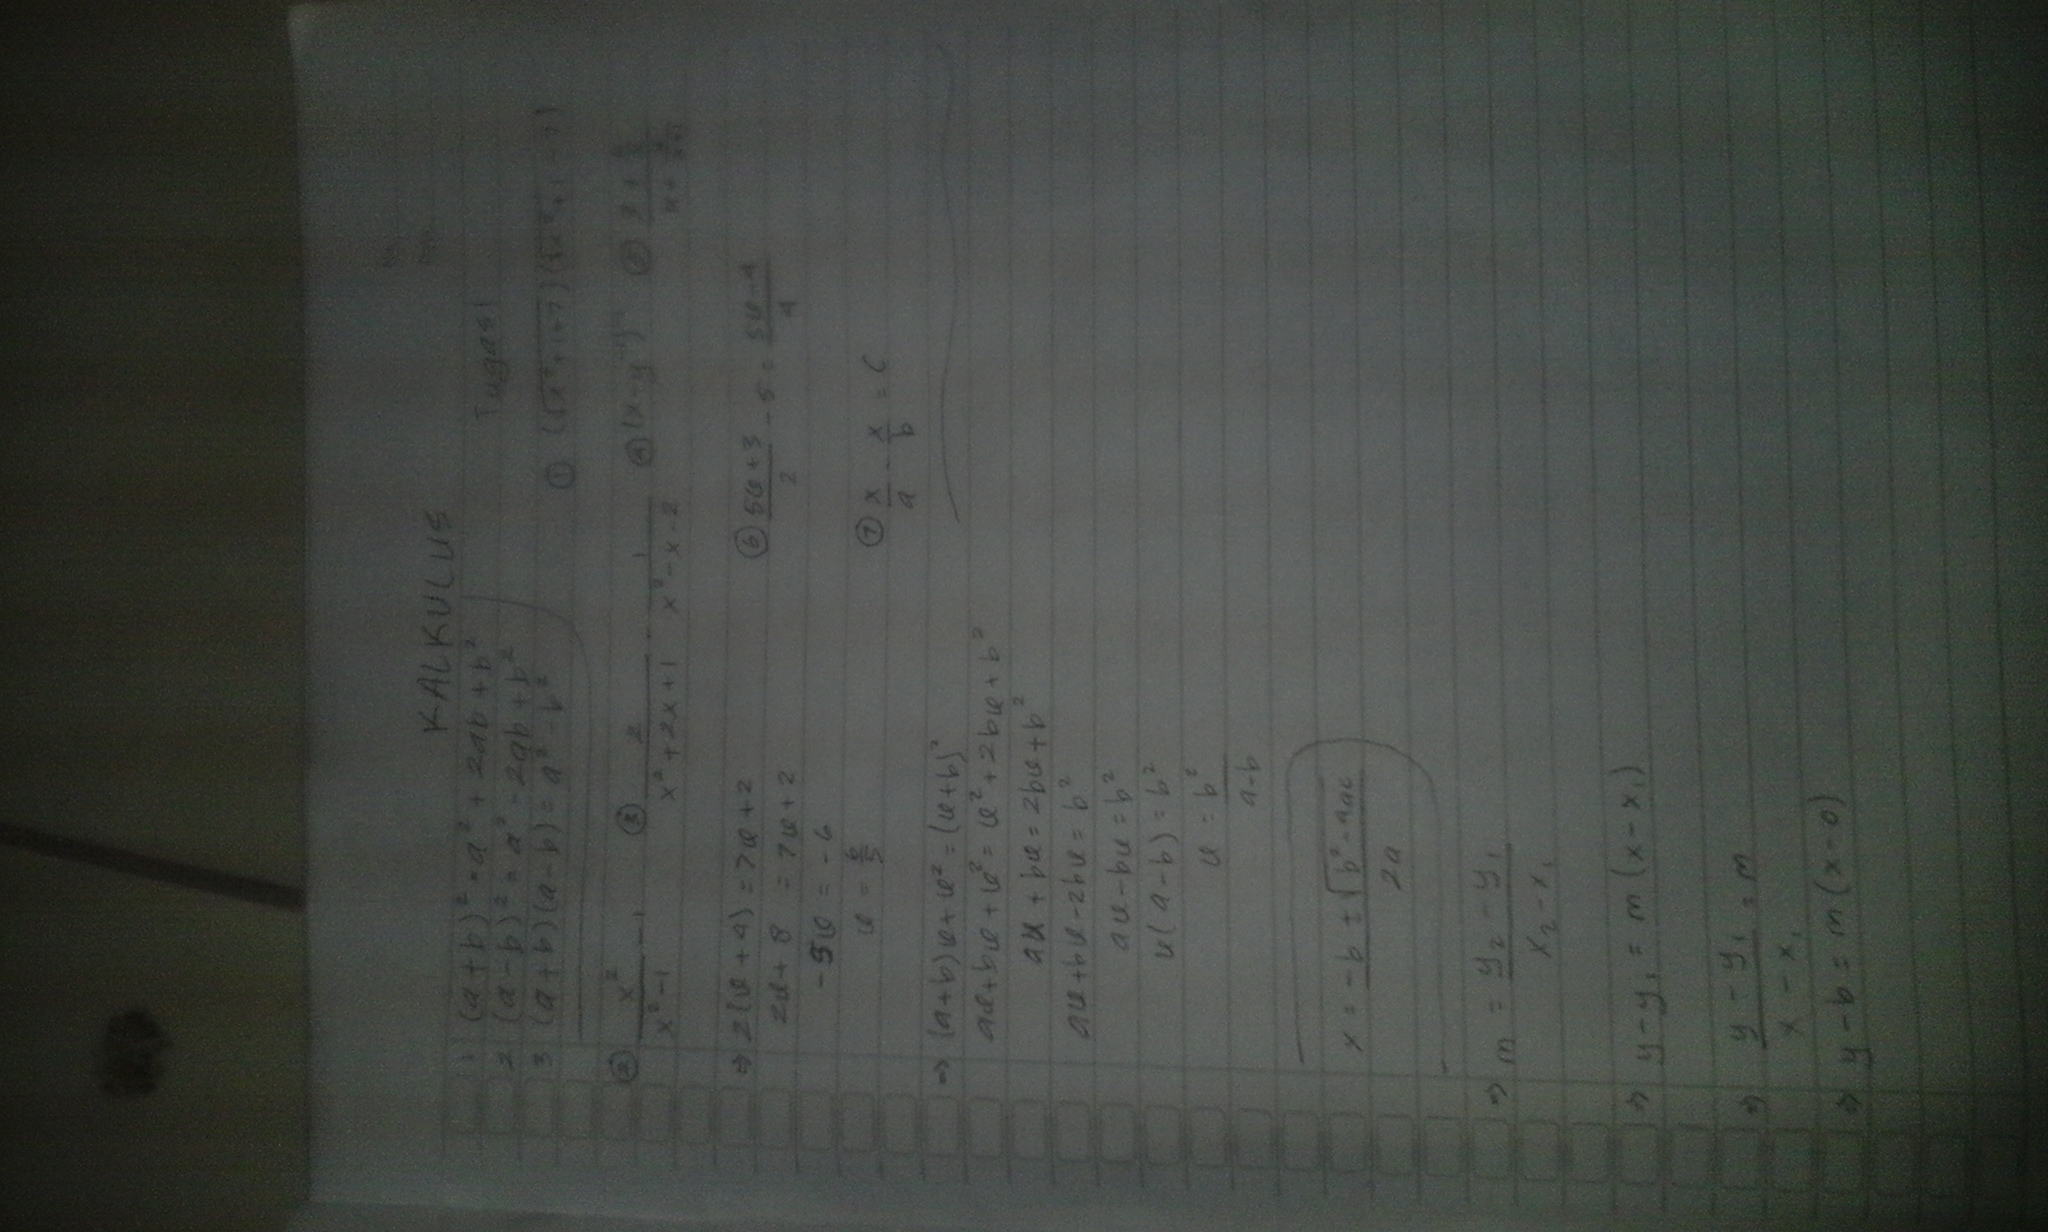 KALKULUS
1 (a+b)² = a² + 2ab + b²
2 (a-b)² = a² - 2ab + b²
3 (a+b)(a-b) = a² - b²
Tugas 1
① (√x²+1+7)(√x²+1-7)
② x²/x²-1 - 1
③ 2/x²+2x+1 - 1/x²-x-2
④ (x-y⁻¹)⁻¹
⑤
⇒ 2(u+4) = 7u+2
2u+8 = 7u+2
-5u = -6
u = 6/5
⑥ 5u+3/2 - 5 = 5u-4/4
⑦ x/a - x/b = c
⇒ (a+b)u+u² = (u+b)²
au+bu+u² = u²+2bu+b²
au+bu = 2bu+b²
au+bu-2bu = b²
au-bu = b²
u(a-b) = b²
u = b²/a-b
x = -b ± √b²-4ac/2a
⇒ m = y₂-y₁/x₂-x₁
⇒ y-y₁ = m(x-x₁)
⇒ y-y₁/x-x₁ = m
⇒ y-b = m(x-0)